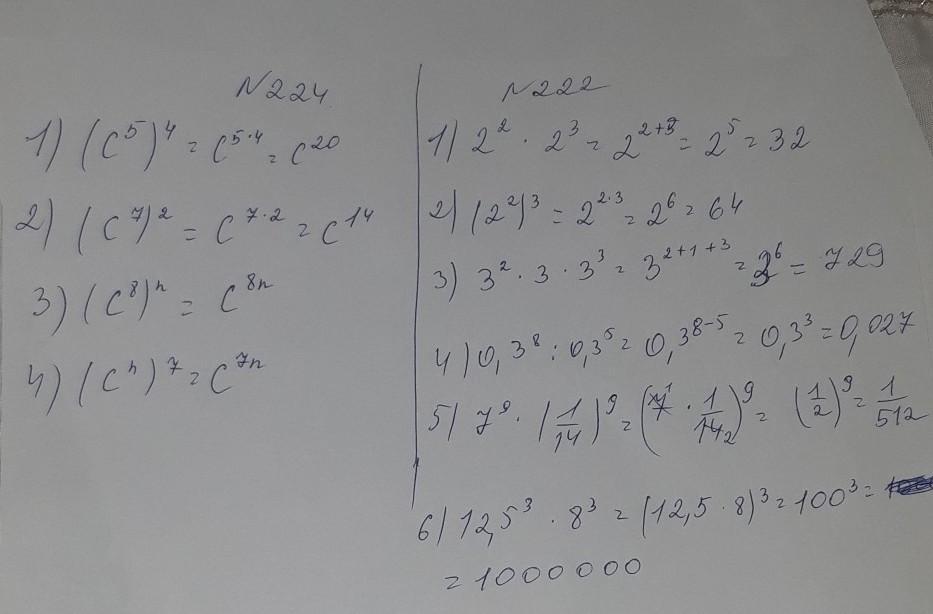 N224
1) (c⁵)⁴ = c⁵·⁴ = c²⁰
2) (c⁷)² = c⁷·² = c¹⁴
3) (c⁸)ⁿ = c⁸ⁿ
4) (cⁿ)⁷ = c⁷ⁿ
N222
1) 2² · 2³ = 2²⁺³ = 2⁵ = 32
2) (2²)³ = 2²·³ = 2⁶ = 64
3) 3² · 3 · 3³ = 3²⁺¹⁺³ = 3⁶ = 729
4) 0,3⁸ : 0,3⁵ = 0,3⁸⁻⁵ = 0,3³ = 0,027
5) 7⁹ · (1/14)⁹ = (7¹ · 1/14₂)⁹ = (1/2)⁹ = 1/512
6) 12,5³ · 8³ = (12,5 · 8)³ = 100³ =
= 1000000